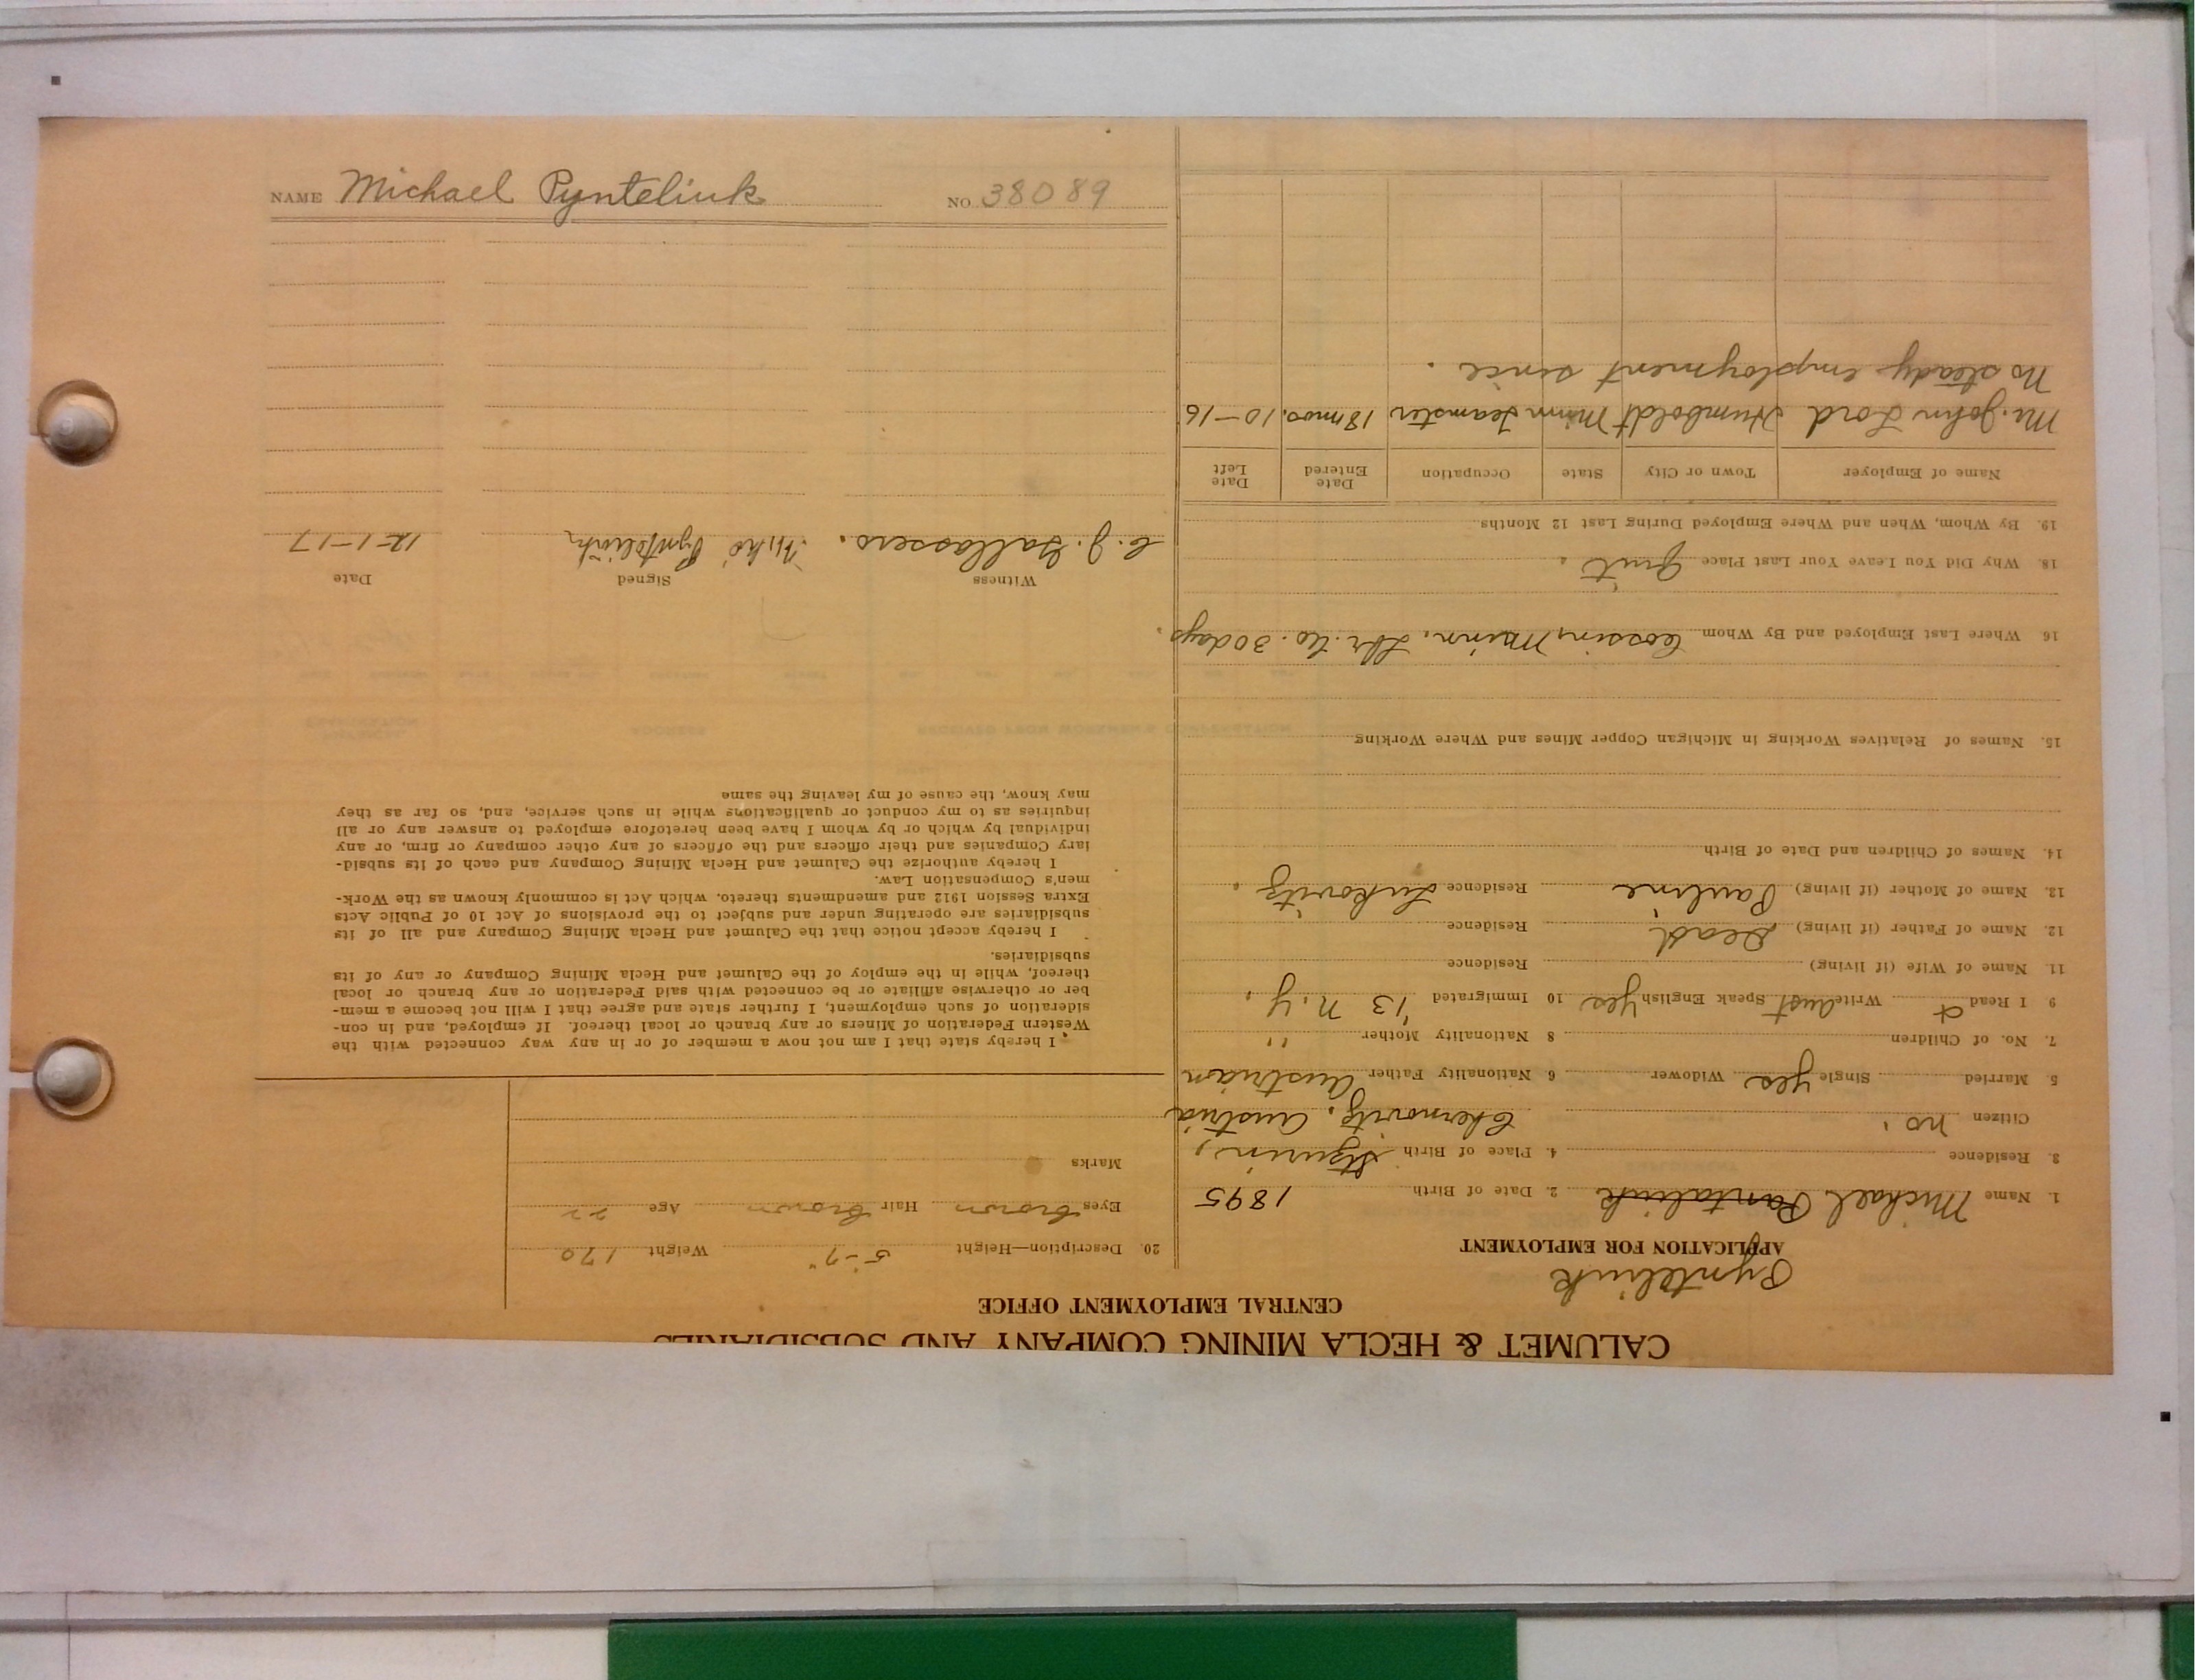 CALUMET & HECLA MINING COMPANY AND SUBSIDIARIES
CENTRAL EMPLOYMENT OFFICE
Pynteliuk
APPLICATION FOR EMPLOYMENT
1. Name Michael Pantaliuk 2. Date of Birth 1895
3. Residence 4. Place of Birth
Citizen no. Chernovitz, Austria
5 Married Single yes Widower 6 Nationality Father Austrian
7. No. of Children 8 Nationality Mother "
9 I Read & Write Aust Speak English yes 10 Immigrated '13 N.Y.
11. Name of Wife (if living) Residence
12. Name of Father (if living) Dead Residence
13. Name of Mother (if living) Pauline Residence Lukovitz.
14. Names of Children and Date of Birth
15. Names of Relatives Working in Michigan Copper Mines and Where Working
16 Where Last Employed and By Whom Cossin, Mainn. Lbr. Co. 30 days.
18. Why Did You Leave Your Last Place Quit.
19. By Whom, When and Where Employed During Last 12 Months
Name of Employer Town or City State Occupation Date Entered Date Left
Mr. John Lord Humboldt Minn Teamster 18 mos. 10-16
No steady employment since.
20. Description—Height 5-7" Weight 170
Eyes Brown Hair Brown Age 22
Marks
I hereby state that I am not now a member of or in any way connected with the
Western Federation of Miners or any branch or local thereof. If employed, and in con-
sideration of such employment, I further state and agree that I will not become a mem-
ber or otherwise affiliate or be connected with said Federation or any branch or local
thereof, while in the employ of the Calumet and Hecla Mining Company or any of its
subsidiaries.
I hereby accept notice that the Calumet and Hecla Mining Company and all of its
subsidiaries are operating under and subject to the provisions of Act 10 of Public Acts
Extra Session 1912 and amendments thereto, which Act is commonly known as the Work-
men's Compensation Law.
I hereby authorize the Calumet and Hecla Mining Company and each of its subsid-
iary Companies and their officers and the officers of any other company or firm, or any
individual by which or by whom I have been heretofore employed to answer any or all
inquiries as to my conduct or qualifications while in such service, and, so far as they
may know, the cause of my leaving the same
Witness Signed Date
C. J. Gallassero. Mike Pyntoliuk 12-1-17
NAME Michael Pynteliuk NO. 38089